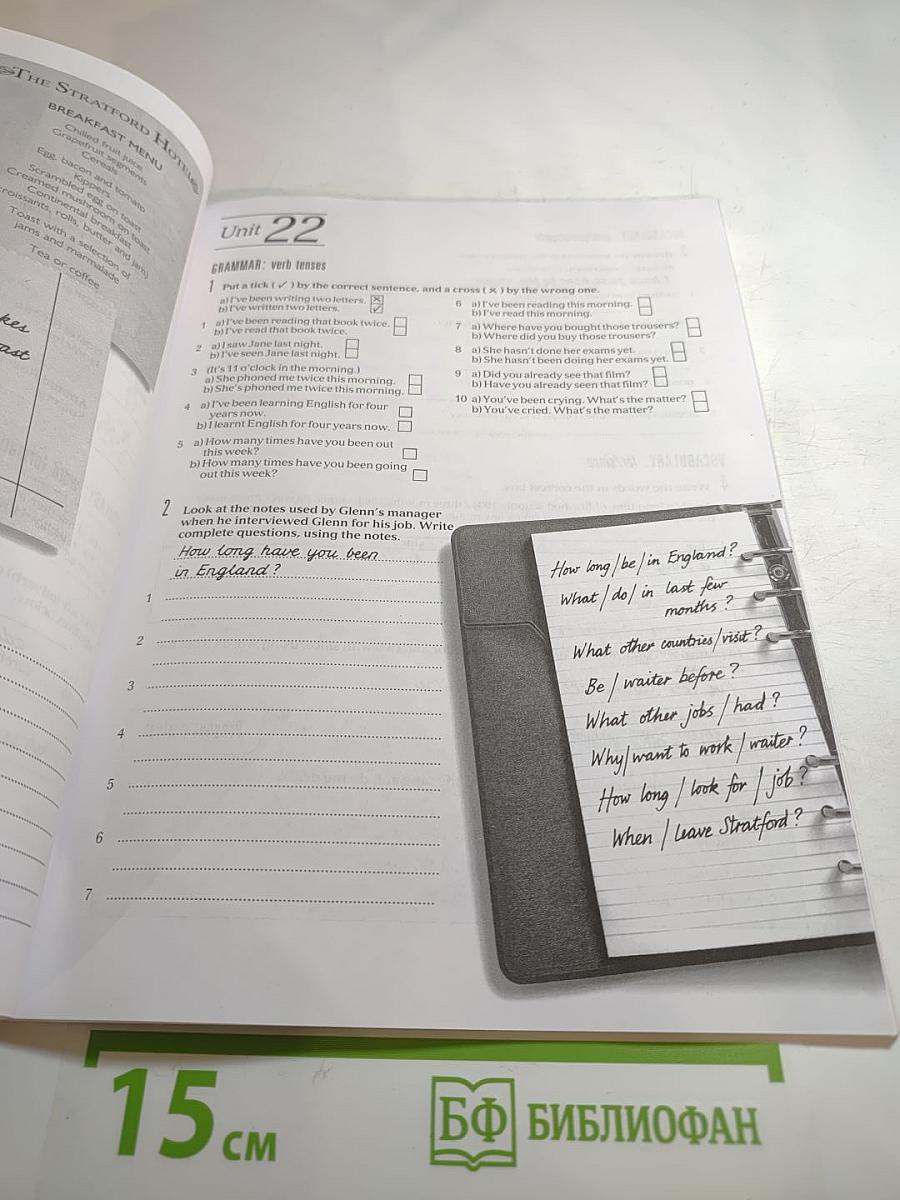 THE STRATFORD HOTEL
BREAKFAST MENU
Chilled fruit juice
Grapefruit segments
Cereals
Egg, bacon and tomato
Kippers
Scrambled egg on toast
Creamed mushroom on toast
Continental breakfast
croissants, rolls, butter and jam)
Toast with a selection of
jams and marmalade
Tea or coffee
Unit 22
GRAMMAR: verb tenses
1 Put a tick (✓) by the correct sentence, and a cross (×) by the wrong one.
a) I've been writing two letters. ☒
b) I've written two letters. ✓
1 a) I've been reading that book twice.
b) I've read that book twice.
2 a) I saw Jane last night.
b) I've seen Jane last night.
3 (It's 11 o'clock in the morning.)
a) She phoned me twice this morning.
b) She's phoned me twice this morning.
4 a) I've been learning English for four
years now.
b) I learnt English for four years now.
5 a) How many times have you been out
this week?
b) How many times have you been going
out this week?
6 a) I've been reading this morning.
b) I've read this morning.
7 a) Where have you bought those trousers?
b) Where did you buy those trousers?
8 a) She hasn't done her exams yet.
b) She hasn't been doing her exams yet.
9 a) Did you already see that film?
b) Have you already seen that film?
10 a) You've been crying. What's the matter?
b) You've cried. What's the matter?
2 Look at the notes used by Glenn's manager
when he interviewed Glenn for his job. Write
complete questions, using the notes.
How long have you been
in England?
1
2
3
4
5
6
7
How long/be/in England?
What/do/in last few
months?
What other countries/visit?
Be/waiter before?
What other jobs/had?
Why/want to work/waiter?
How long/look for/job?
When/leave Stratford?
15 см
БФ БИБЛИОФАН